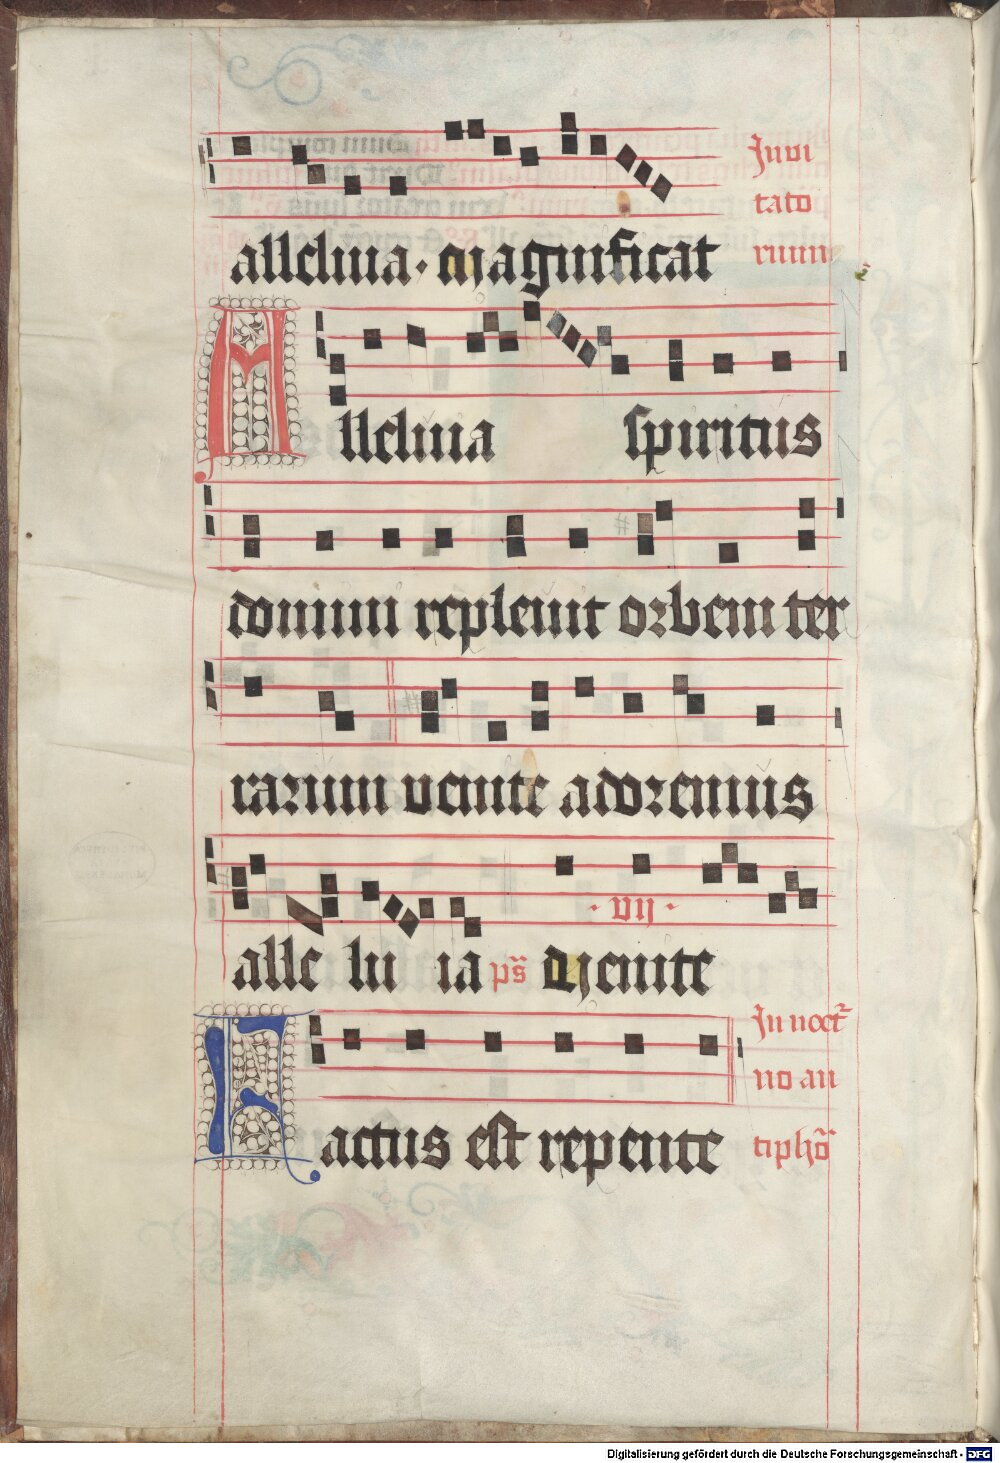 alleluia · Magnificat
Inui
tato
rium
Alleluia spiritus
domini repleuit orbem ter
rarum uenite adoremus
· vij ·
alle lu ia ps̄ Uenite
Factus est repente
In noct̄
no an
tiphō
Digitalisierung gefördert durch die Deutsche Forschungsgemeinschaft - DFG